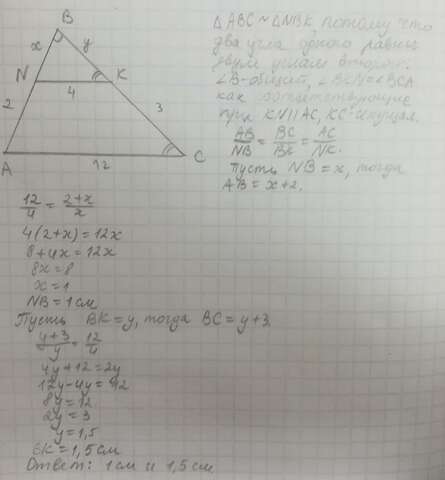 B
x
y
N
K
4
2
3
A
12
C
△ABC ~ △NBK, потому что
два угла одного равны
двум углам второго.
∠B-общий, ∠BKN=∠BCA
как соответствующие
при KN∥AC, KC-секущая.
AB/NB = BC/BK = AC/NK.
Пусть NB = x, тогда
AB = x+2.
12/4 = (2+x)/x
4(2+x)=12x
8+4x=12x
8x=8
x=1
NB=1см
Пусть BK=y, тогда BC=y+3.
(y+3)/y = 12/4
4y+12=
12y-4y=12
8y=12
2y=3
y=1,5
BK=1,5см
Ответ: 1см и 1,5см